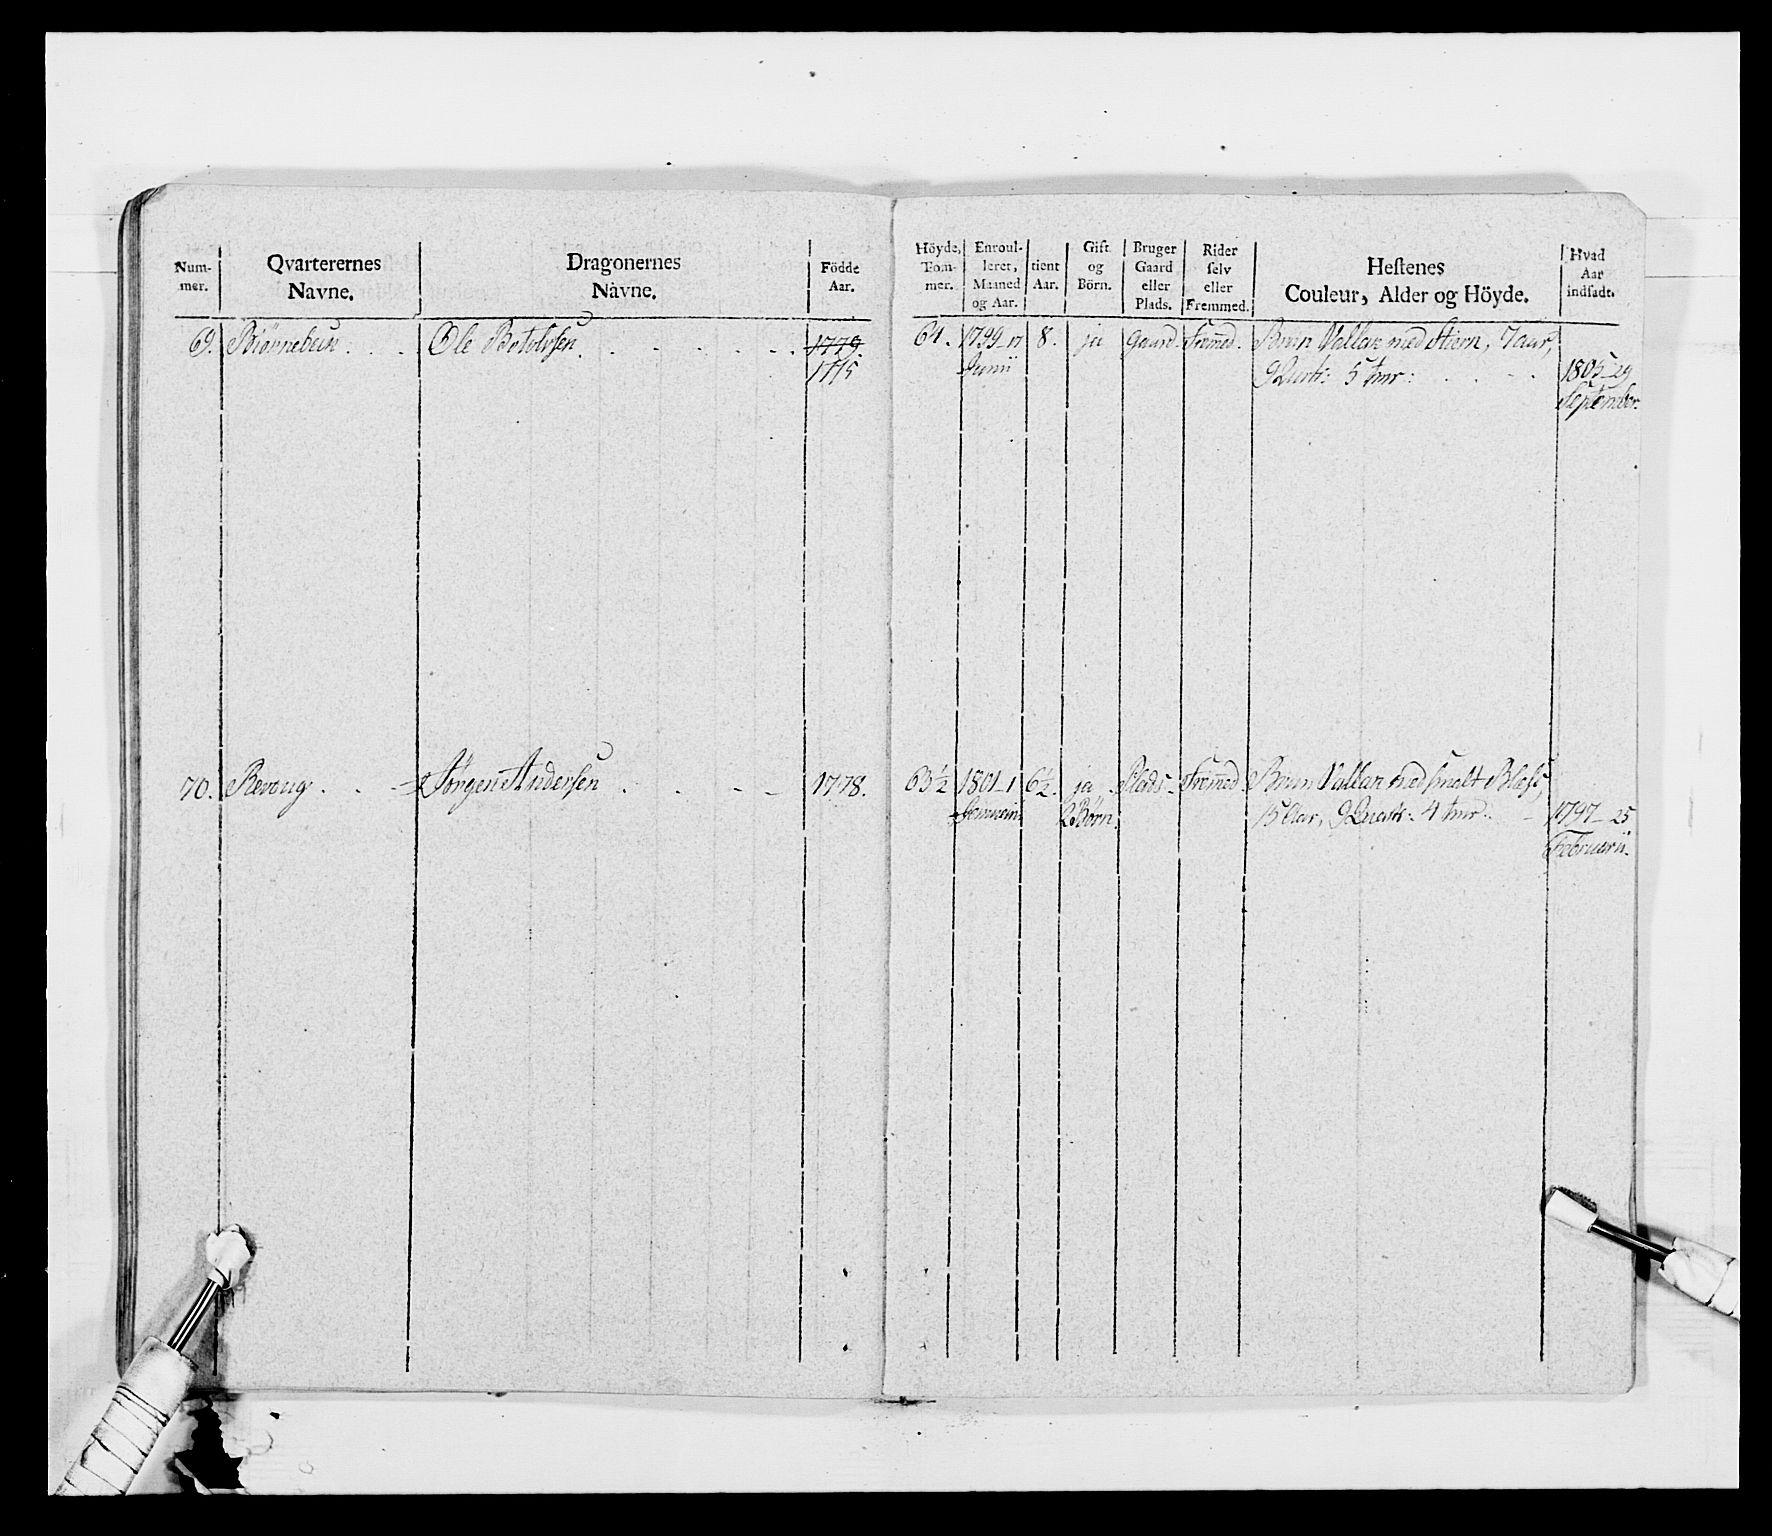 Num-
mer.
Qvarterernes
Navne.
Dragonernes
Nåvne.
Födde
Aar.
Höyde,
Tom-
mer.
Enroul-
leret,
Maaned
og Aar.
tient
Aar.
Gift
og
Börn.
Bruger
Gaard
eller
Plads.
Rider
selv
eller
Fremmed.
Hestenes
Couleur, Alder og Höyde.
Hvad
Aar
indsadt.
69. Biønnebek Ole Botolvsen 1779. 64. 1799 17 8. ja Gaard. Fremed. Bruun Vallak med Stiern, 7 aar,
1775 Junii 9 Quart: 5 tmr: 1805 29
September.
70. Revoug Jørgen Andersen 1778. 63½ 1801 1 6½. ja Plads. Fremed. Bruun Vallak med smalt Bless,
2 Børn. 15 Aar, 9 Quart: 4 tmr: 1797 25
Februarii.